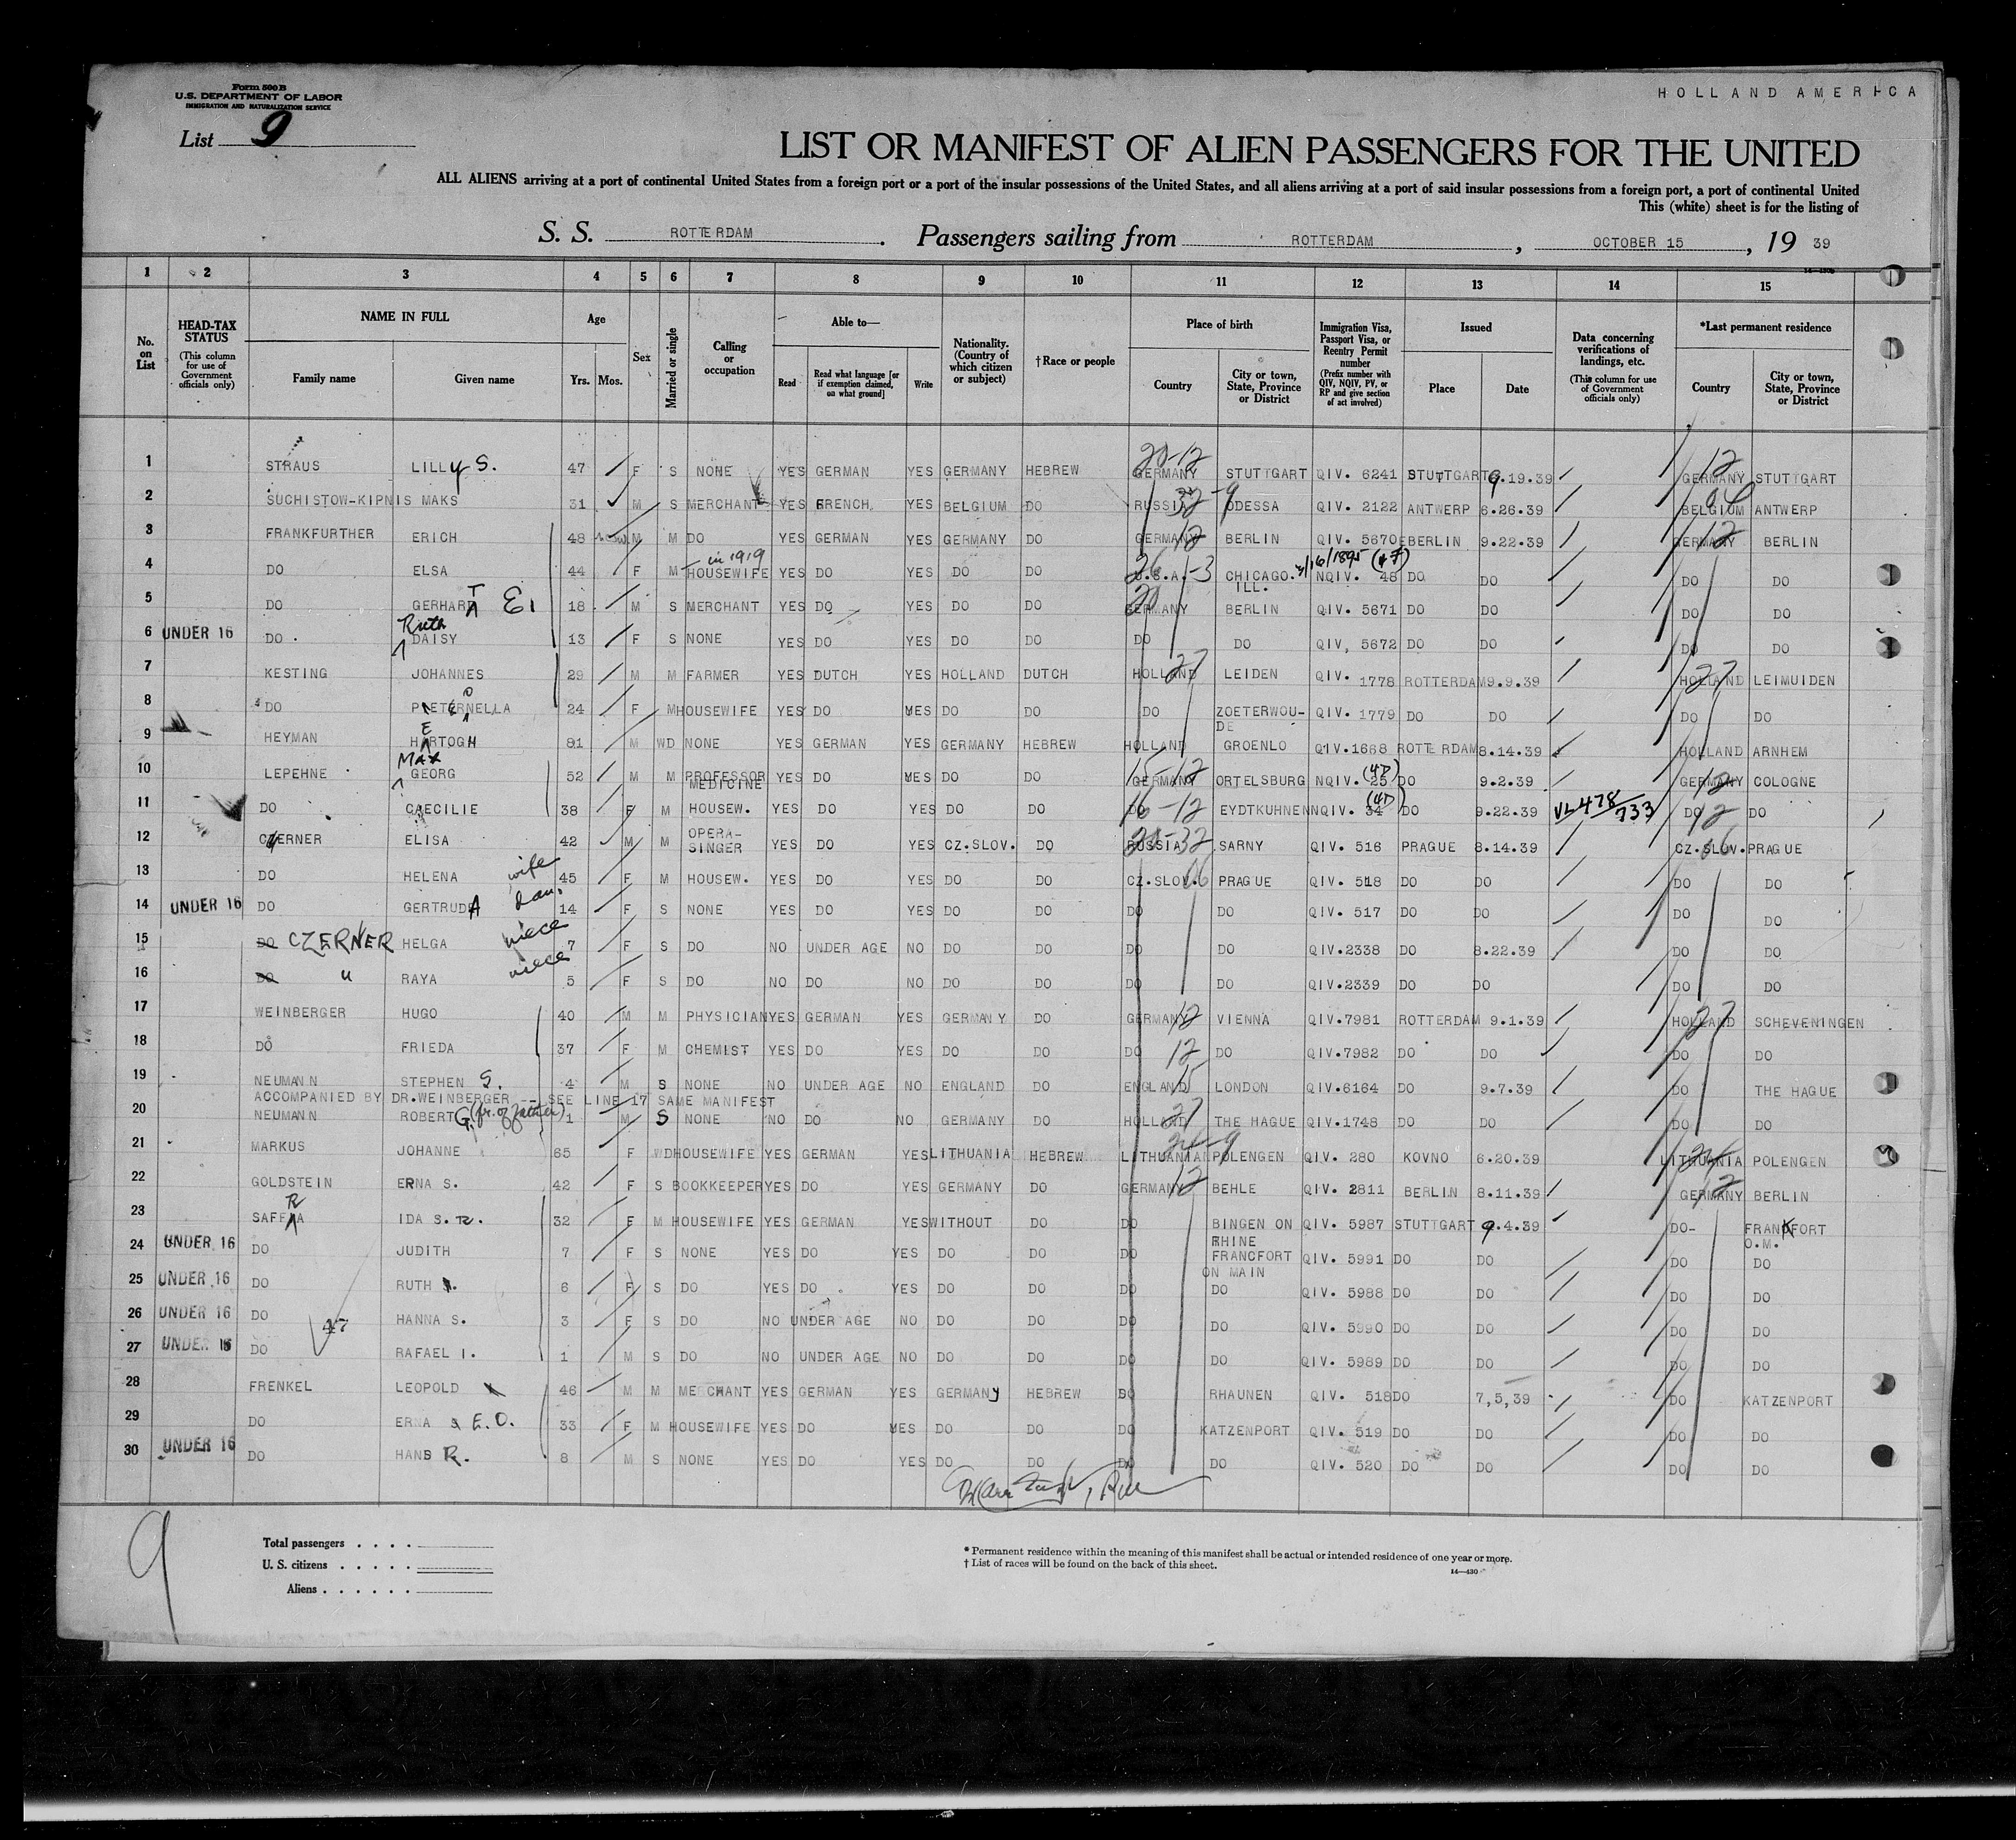 Form 500 B
U.S. DEPARTMENT OF LABOR
IMMIGRATION AND NATURALIZATION SERVICE
HOLLAND AMERICA
List 9
LIST OR MANIFEST OF ALIEN PASSENGERS FOR THE UNITED
ALL ALIENS arriving at a port of continental United States from a foreign port or a port of the insular possessions of the United States, and all aliens arriving at a port of said insular possessions from a foreign port, a port of continental United
This (white) sheet is for the listing of
S. S. ROTTERDAM. Passengers sailing from ROTTERDAM, OCTOBER 15, 19 39
1 2 3 4 5 6 7 8 9 10 11 12 13 14 15
No. on List
HEAD-TAX STATUS (This column for use of Government officials only)
NAME IN FULL
Family name Given name
Age
Yrs. Mos.
Sex
Married or single
Calling or occupation
Able to—
Read
Read what language [or if exemption claimed, on what ground]
Write
Nationality. (Country of which citizen or subject)
†Race or people
Place of birth
Country
City or town, State, Province or District
Immigration Visa, Passport Visa, or Reentry Permit number (Prefix number with QIV, NQIV, PV, or RP and give section of act involved)
Issued
Place Date
Data concerning verifications of landings, etc. (This column for use of Government officials only)
*Last permanent residence
Country
City or town, State, Province or District
1 STRAUS LILLY S. 47 F S NONE YES GERMAN YES GERMANY HEBREW GERMANY 20-12 STUTTGART QIV. 6241 STUTTGART 9.19.39 GERMANY 12 STUTTGART
2 SUCHISTOW-KIPNIS MAKS 31 M S MERCHANT YES FRENCH YES BELGIUM DO RUSSIA 32-9 ODESSA QIV. 2122 ANTWERP 6.26.39 BELGIUM ANTWERP
3 FRANKFURTHER ERICH 48 M M DO YES GERMAN YES GERMANY DO GERMANY 12 BERLIN QIV. 5670 BERLIN 9.22.39 GERMANY 12 BERLIN
4 DO ELSA 44 F M in 1919 HOUSEWIFE YES DO YES DO DO U.S.A. -3 CHICAGO. ILL. 3/16/1895 (4 f) NQIV. 48 DO DO DO DO
5 DO GERHART E. 18 M S MERCHANT YES DO YES DO DO GERMANY BERLIN QIV. 5671 DO DO DO DO
6 UNDER 16 DO. Ruth DAISY 13 F S NONE YES DO YES DO DO DO DO QIV, 5672 DO DO DO DO
7 KESTING JOHANNES 29 M M FARMER YES DUTCH YES HOLLAND DUTCH HOLLAND 27 LEIDEN QIV. 1778 ROTTERDAM 9.9.39 HOLLAND 27 LEIMUIDEN
8 DO PIETERNELLA 24 F M HOUSEWIFE YES DO YES DO DO DO ZOETERWOU-DE QIV. 1779 DO DO DO DO
9 HEYMAN HERTOGH 81 M WD NONE YES GERMAN YES GERMANY HEBREW HOLLAND GROENLO QIV.1668 ROTTERDAM 8.14.39 HOLLAND ARNHEM
10 LEPEHNE Max GEORG 52 M M PROFESSOR MEDICINE YES DO YES DO DO GERMANY 15-12 ORTELSBURG NQIV. 25 (4D) DO 9.2.39 GERMANY 12 COLOGNE
11 DO CAECILIE 38 F M HOUSEW. YES DO YES DO DO DO 16-12 EYDTKUHNEN NQIV. 34 (4D) DO 9.22.39 VL 478/733 DO 12 DO
12 CZERNER ELISA 42 M M OPERA-SINGER YES DO YES CZ.SLOV. DO RUSSIA SARNY QIV. 516 PRAGUE 8.14.39 CZ.SLOV. PRAGUE
13 DO HELENA wife 45 F M HOUSEW. YES DO YES DO DO CZ.SLOV. PRAGUE QIV. 518 DO DO DO DO
14 UNDER 16 DO GERTRUDA dau. 14 F S NONE YES DO YES DO DO DO DO QIV. 517 DO DO DO DO
15 DO CZERNER HELGA niece 7 F S DO NO UNDER AGE NO DO DO DO DO QIV.2338 DO 8.22.39 DO DO
16 DO " RAYA niece 5 F S DO NO DO NO DO DO DO DO QIV.2339 DO DO DO DO
17 WEINBERGER HUGO 40 M M PHYSICIAN YES GERMAN YES GERMANY DO GERMANY 12 VIENNA QIV.7981 ROTTERDAM 9.1.39 HOLLAND 27 SCHEVENINGEN
18 DO FRIEDA 37 F M CHEMIST YES DO YES DO DO DO 12 DO QIV.7982 DO DO DO DO
19 NEUMANN STEPHEN S. 4 M S NONE NO UNDER AGE NO ENGLAND DO ENGLAND 15 LONDON QIV.6164 DO 9.7.39 DO THE HAGUE
ACCOMPANIED BY DR.WEINBERGER -- SEE LINE 17 SAME MANIFEST
20 NEUMANN ROBERT G. (fr. of father) 1 M S NONE NO DO NO GERMANY DO HOLLAND 27 THE HAGUE QIV.1748 DO DO DO DO
21 MARKUS JOHANNE 65 F WD HOUSEWIFE YES GERMAN YES LITHUANIA HEBREW LITHUANIA POLENGEN QIV. 280 KOVNO 6.20.39 LITHUANIA POLENGEN
22 GOLDSTEIN ERNA S. 42 F S BOOKKEEPER YES DO YES GERMANY DO GERMANY 12 BEHLE QIV. 2811 BERLIN 8.11.39 GERMANY 12 BERLIN
23 SAFFRA IDA S.R. 32 F M HOUSEWIFE YES GERMAN YES WITHOUT DO DO BINGEN ON RHINE QIV. 5987 STUTTGART 9.4.39 DO- FRANKFORT O.M.
24 UNDER 16 DO JUDITH 7 F S NONE YES DO YES DO DO DO FRANCFORT ON MAIN QIV. 5991 DO DO DO DO
25 UNDER 16 DO RUTH 6 F S DO YES DO YES DO DO DO DO QIV. 5988 DO DO DO DO
26 UNDER 16 DO HANNA S. 3 F S DO NO UNDER AGE NO DO DO DO DO QIV. 5990 DO DO DO DO
27 UNDER 16 DO RAFAEL I. 1 M S DO NO UNDER AGE NO DO DO DO DO QIV. 5989 DO DO DO DO
28 FRENKEL LEOPOLD 46 M M MERCHANT YES GERMAN YES GERMANY HEBREW DO RHAUNEN QIV. 518 DO 7,5,39 DO KATZENPORT
29 DO ERNA E.O. 33 F M HOUSEWIFE YES DO YES DO DO DO KATZENPORT QIV. 519 DO DO DO DO
30 UNDER 16 DO HANS R. 8 M S NONE YES DO YES DO DO DO DO QIV. 520 DO DO DO DO
9
Total passengers . . . .
U. S. citizens . . . . .
Aliens . . . . . .
* Permanent residence within the meaning of this manifest shall be actual or intended residence of one year or more.
† List of races will be found on the back of this sheet.
14—430